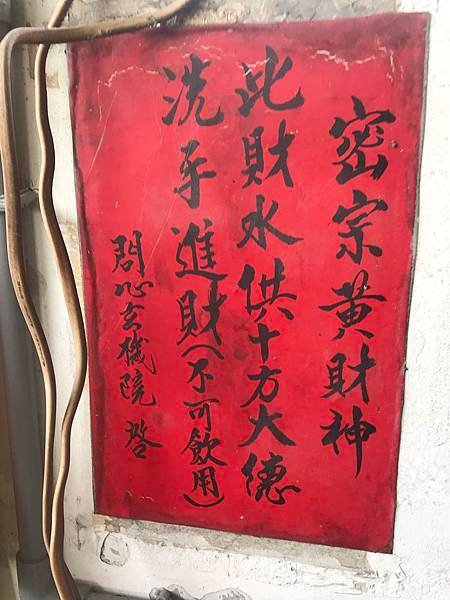 密宗黃財神
此財水供十方大德
洗手進財(不可飲用)
問心玄機院 啓